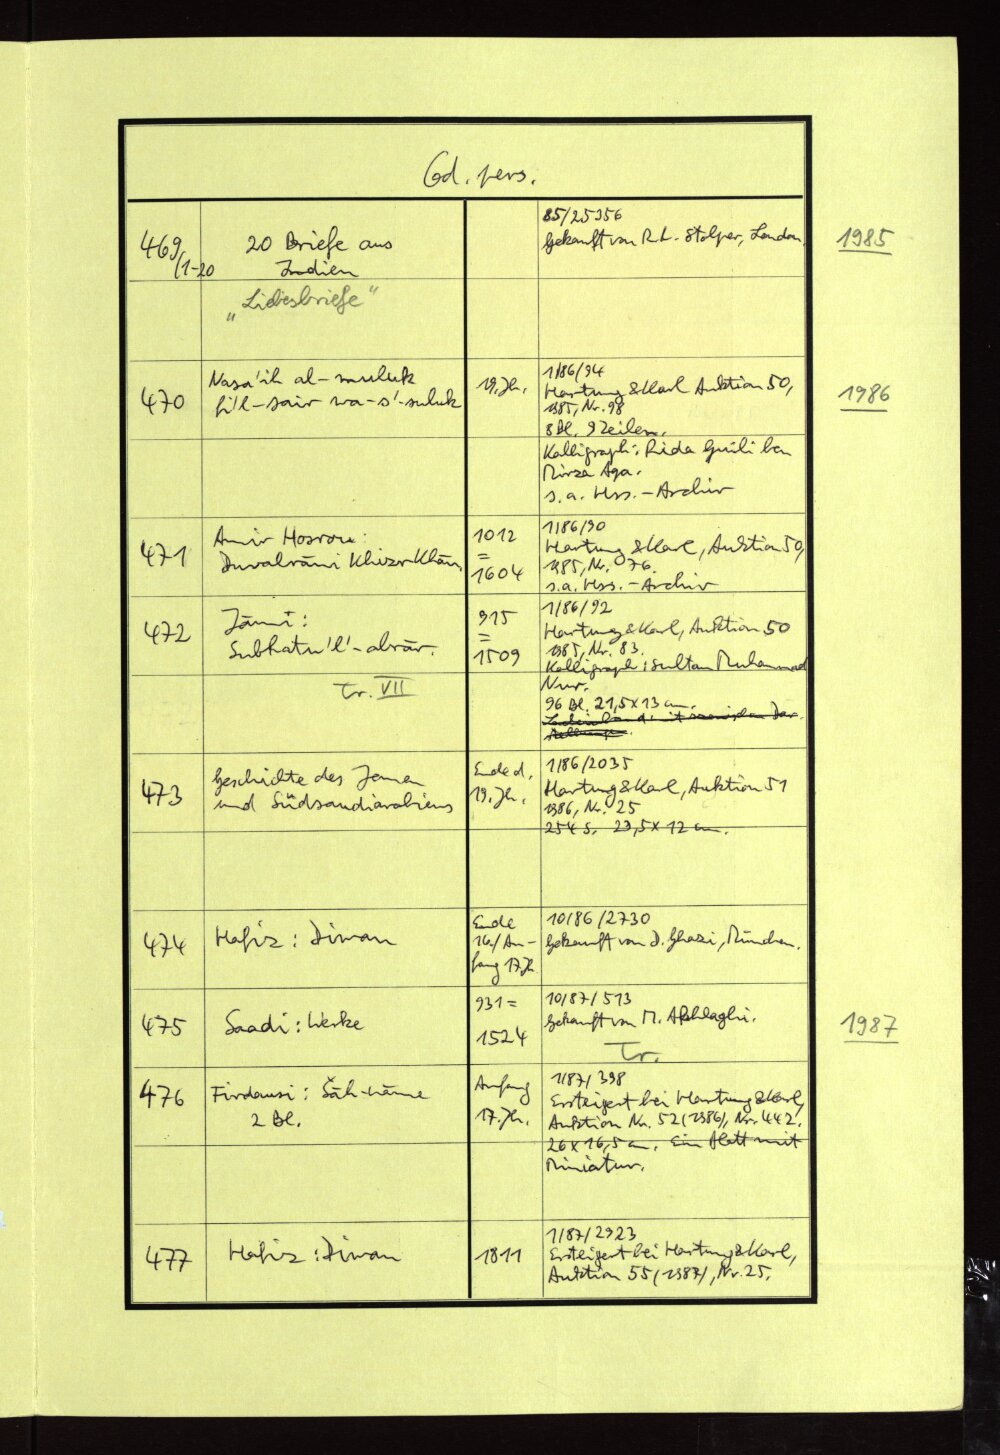 Cod. pers.
469/1-20
20 Briefe aus
Indien
„Liebesbriefe"
85/25356
gekauft von R.L. Stolper, London.
1985
470
Nasa'ih al-muluk
fi'l-sair wa-s'-suluk
19. Jh.
1/86/94
Hartung & Karl Auktion 50,
1985, Nr. 98
8 Bl. 9 Zeilen.
Kalligraph: Rida Guili ben
Mirza Aga.
s.a. Hss.-Archiv
1986
471
Amir Hosrou:
Duvalrāni Khizr Khān,
1012
=
1604
1/86/90
Hartung & Karl, Auktion 50,
1985, Nr. 76.
s.a. Hss.-Archiv
472
Jāmī:
Subhatu'l'-abrār.
Tr. VII
915
=
1509
1/86/92
Hartung & Karl, Auktion 50
1985, Nr. 83.
Kalligraph: Sultan Muhammad
Nur.
96 Bl. 21,5 x 13 cm.
473
Geschichte des Jemen
und Südsaudiarabiens
Ende d.
19. Jh.
1/86/2035
Hartung & Karl, Auktion 51
1986, Nr. 25
254 S. 23,5 x 12 cm.
474
Hafiz: Diwan
Ende
16./An-
fang 17. Jh
10/86/2730
gekauft von D. Ghazi, München.
475
Saadi: Werke
931 =
1524
10/87/513
gekauft von M. Akhlaghi.
Tr.
1987
476
Firdausi: Šāh-nāme
2 Bl.
Anfang
17. Jh.
1/87/398
Ersteigert bei Hartung & Karl,
Auktion Nr. 52 (1986), Nr. 442.
26 x 16,5 cm. Ein Blatt mit
Miniatur.
477
Hafiz: Diwan
1811
1/87/2923
Ersteigert bei Hartung & Karl,
Auktion 55 (1987), Nr. 25.